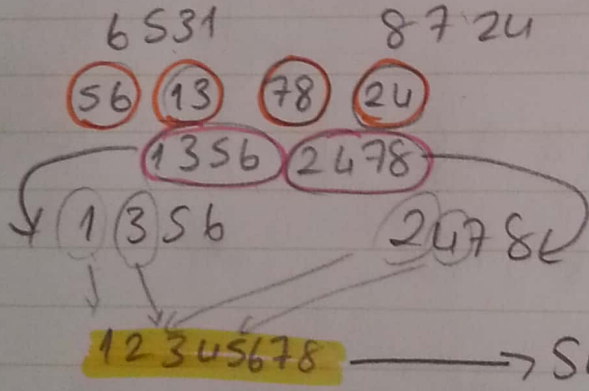 6531 8724
56 13 78 24
1356 2478
1356 2478
12345678